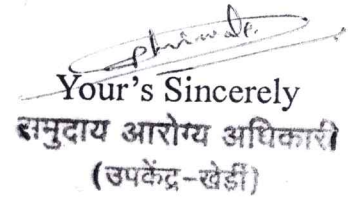 Your's Sincerely
समुदाय आरोग्य अधिकारी
(उपकेंद्र-खेर्डी)